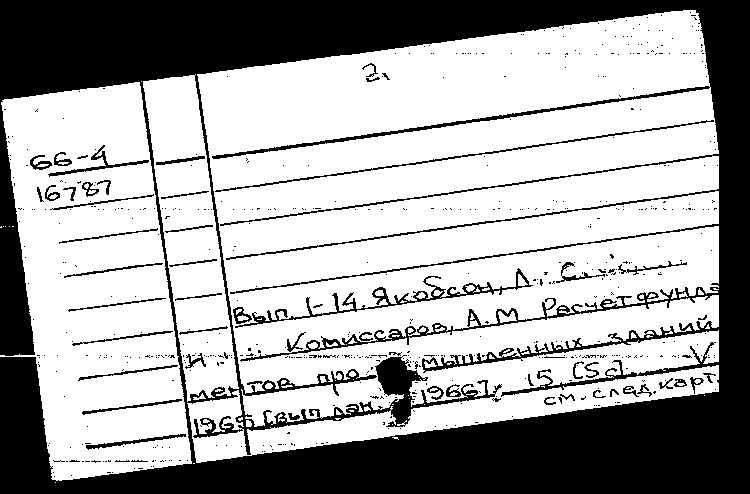 2.
66-4
16787
Вып. 1-14. Якобсон, Л. С.
и Комиссаров, А.М Расчет фунда
ментов про мышленных зданий
1965 [вып дан. 1966]; 15, [5 с]. V
см. след. карт.